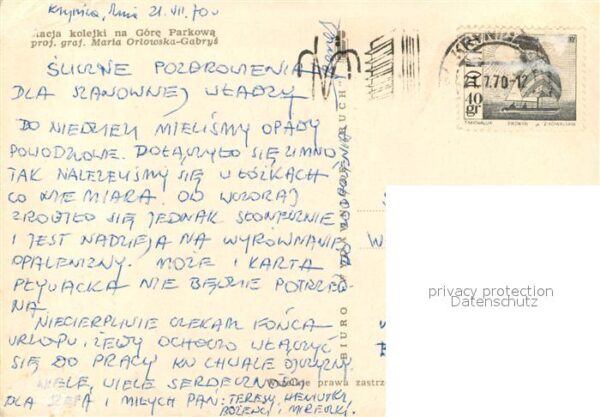 Krynica, dnia 21.VII.70
acja kolejki na Górę Parkową
prof. graf. Maria Orłowska-Gabryś
ŚLICZNE POZDROWIENIA
DLA SZANOWNEJ WŁADZY
DO NIEDZIELI MIELIŚMY OPADY
POWODZIOWE. DOŁĄCZYŁO SIĘ ZIMNO
TAK NALEŻELIŚMY SIĘ W ŁÓŻKACH
CO NIEMIARA. OD WCZORAJ
ZROBIŁO SIĘ JEDNAK SŁONECZNIE
I JEST NADZIEJA NA WYRÓWNANIE
OPALENIZNY. MOŻE I KARTA
PŁYWACKA NIE BĘDZIE POTRZEB
NA.
NIECIERPLIWIE CZEKAM KOŃCA
URLOPU, ŻEBY OCHOCZO WŁĄCZYĆ
SIĘ DO PRACY KU CHWALE OJCZYZNY.
WIELE, WIELE SERDECZNOŚCI
DLA SZEFA I MIŁYCH PAŃ: TERESY, HENIUTKI,
BOŻENKI, MIRECZKI.
BIURO RUCH
prawa zastrz
KRYNICA
7.70-17
40 gr
privacy protection
Datenschutz